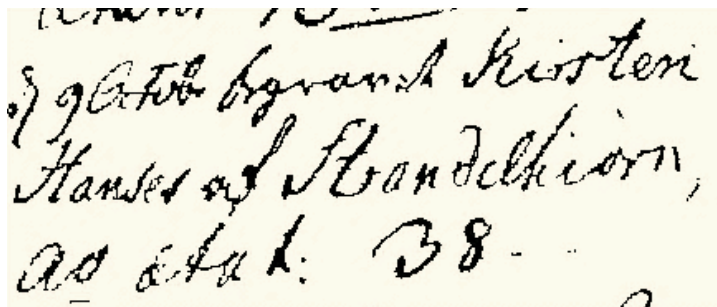 d 9 Octob begravet Kirsten
Hanses af Standelhiørn,
ao ætat: 38